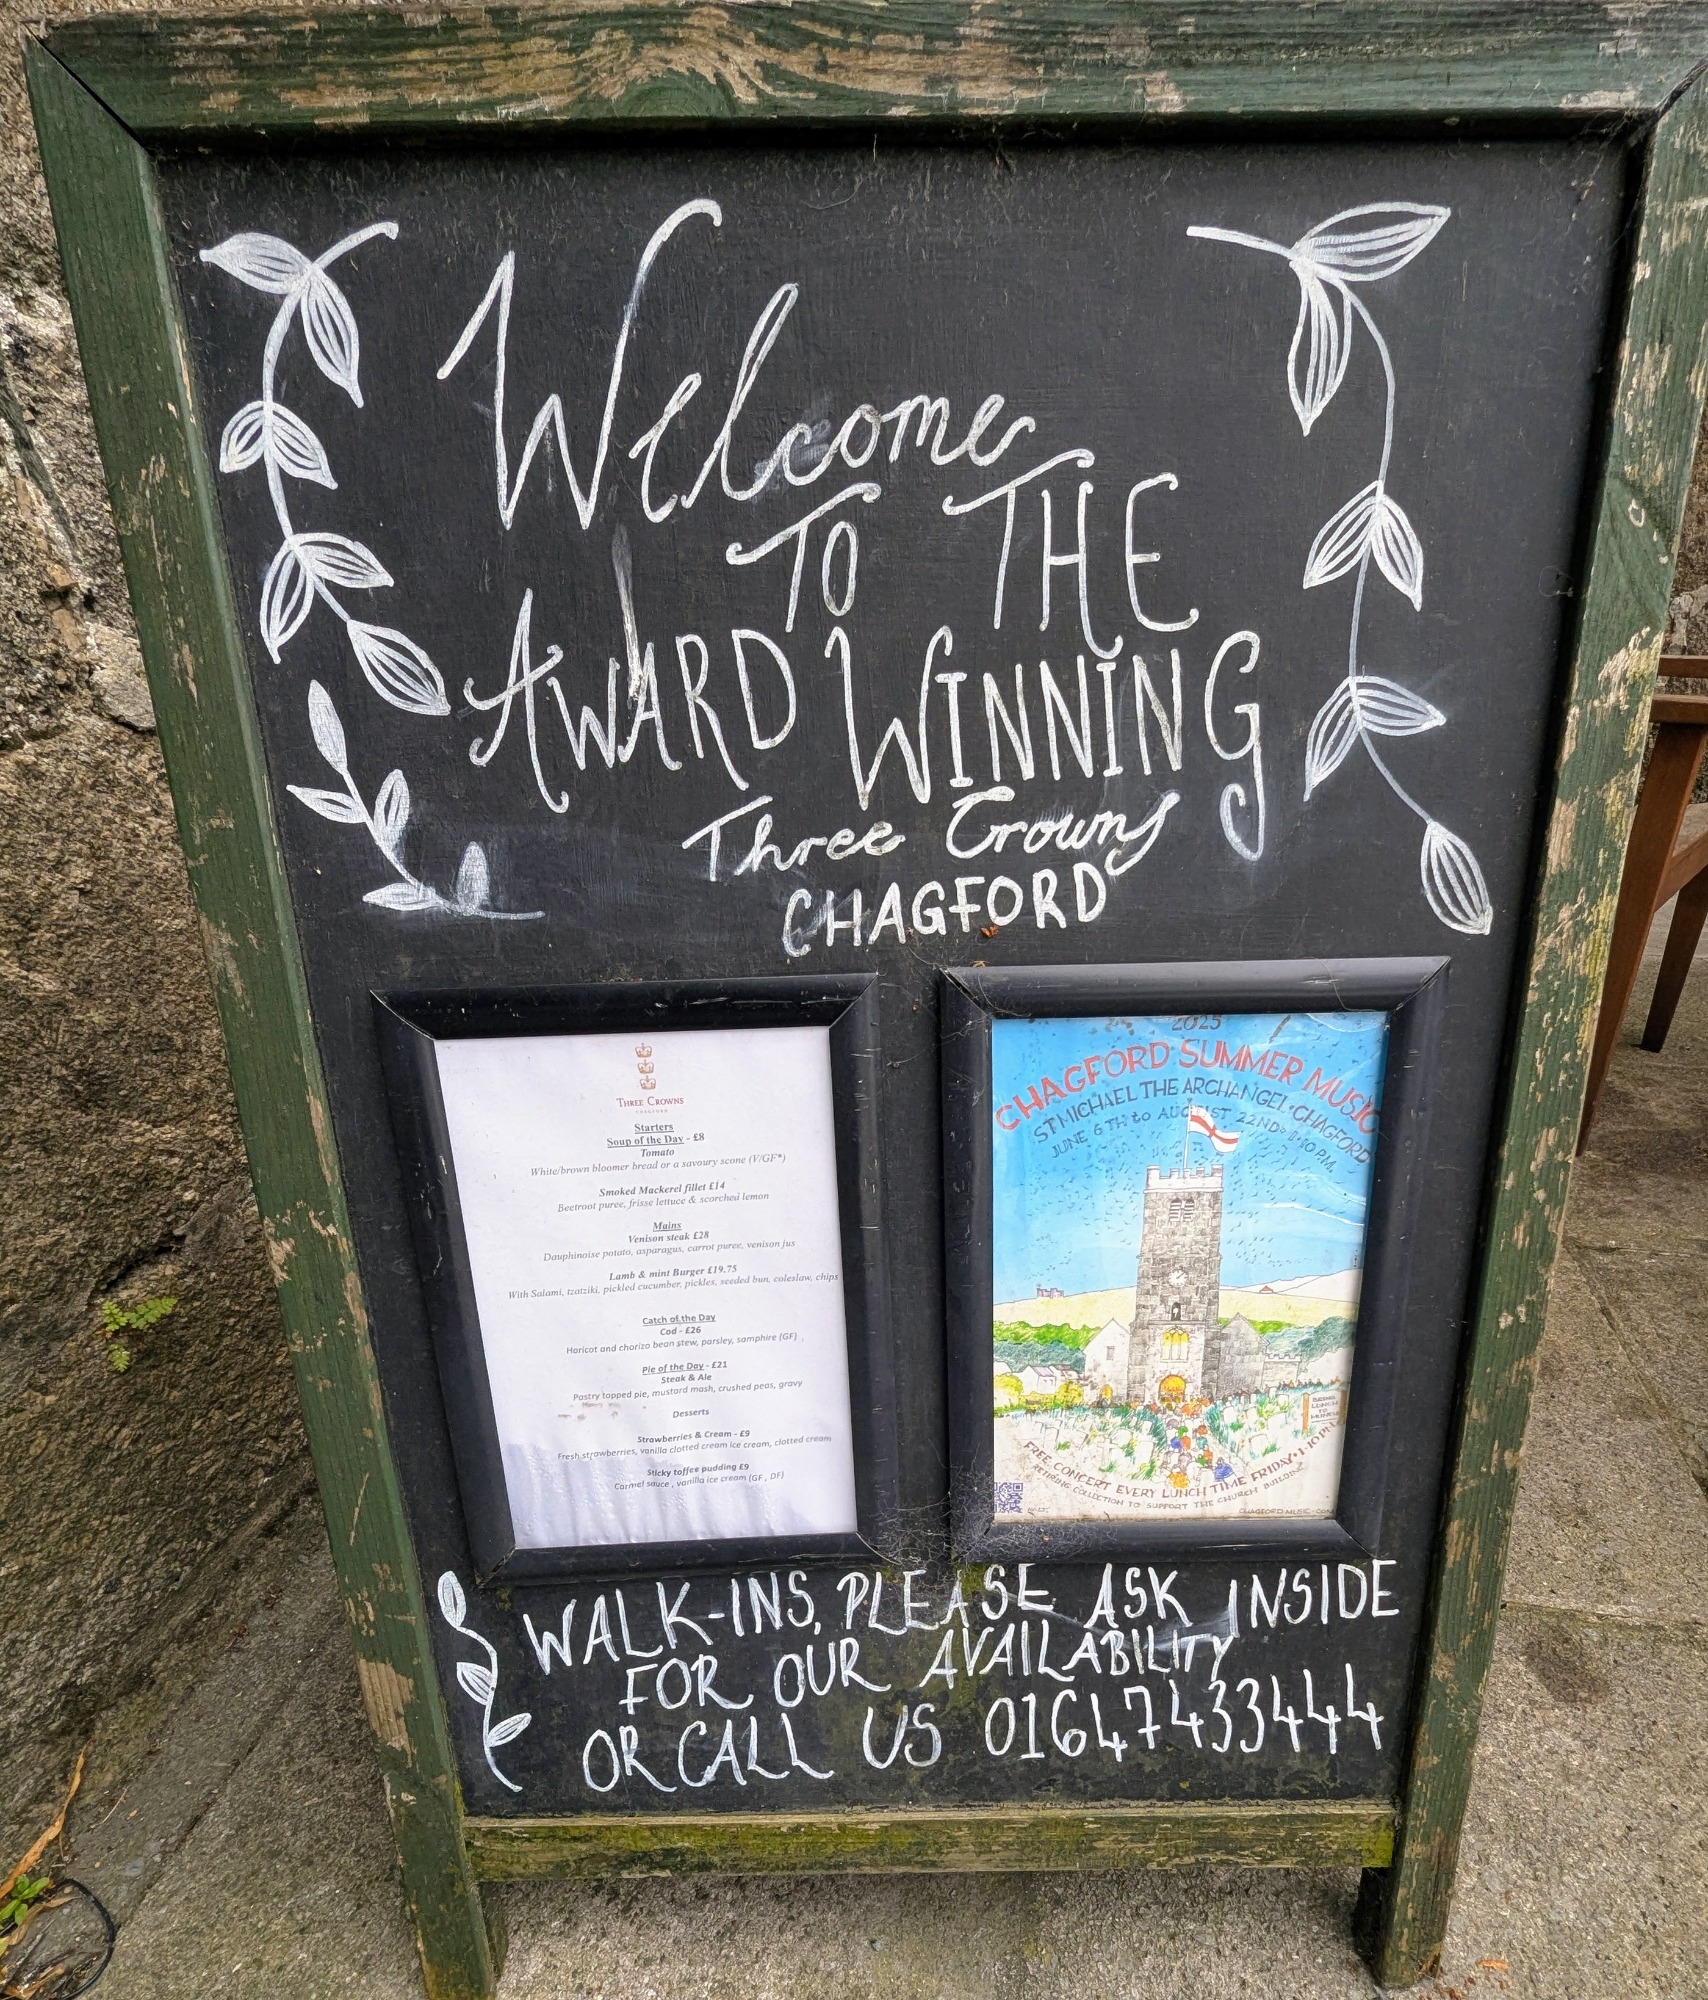 Welcome
TO THE
AWARD WINNING
Three Crowns
CHAGFORD
THREE CROWNS
CHAGFORD
Starters
Soup of the Day - £8
Tomato
White/brown bloomer bread or a savoury scone (V/GF*)
Smoked Mackerel fillet £14
Beetroot puree, frisse lettuce & scorched lemon
Mains
Venison steak £28
Dauphinoise potato, asparagus, carrot puree, venison jus
Lamb & mint Burger £19.75
With Salami, tzatziki, pickled cucumber, pickles, seeded bun, coleslaw, chips
Catch of the Day
Cod - £26
Haricot and chorizo bean stew, parsley, samphire (GF)
Pie of the Day - £21
Steak & Ale
Pastry topped pie, mustard mash, crushed peas, gravy
Desserts
Strawberries & Cream - £9
Fresh strawberries, vanilla clotted cream ice cream, clotted cream
Sticky toffee pudding £9
Carmel sauce , vanilla ice cream (GF , DF)
2025
CHAGFORD SUMMER MUSIC
ST MICHAEL THE ARCHANGEL·CHAGFORD
JUNE 6TH to AUGUST 22ND· 1·10 PM.
FREE CONCERT EVERY LUNCH TIME FRIDAY·1·10 PM
RETIRING COLLECTION TO SUPPORT THE CHURCH BUILDING
CHAGFORD-MUSIC·COM
WALK-INS, PLEASE ASK INSIDE
FOR OUR AVAILABILITY
OR CALL US 01647433444